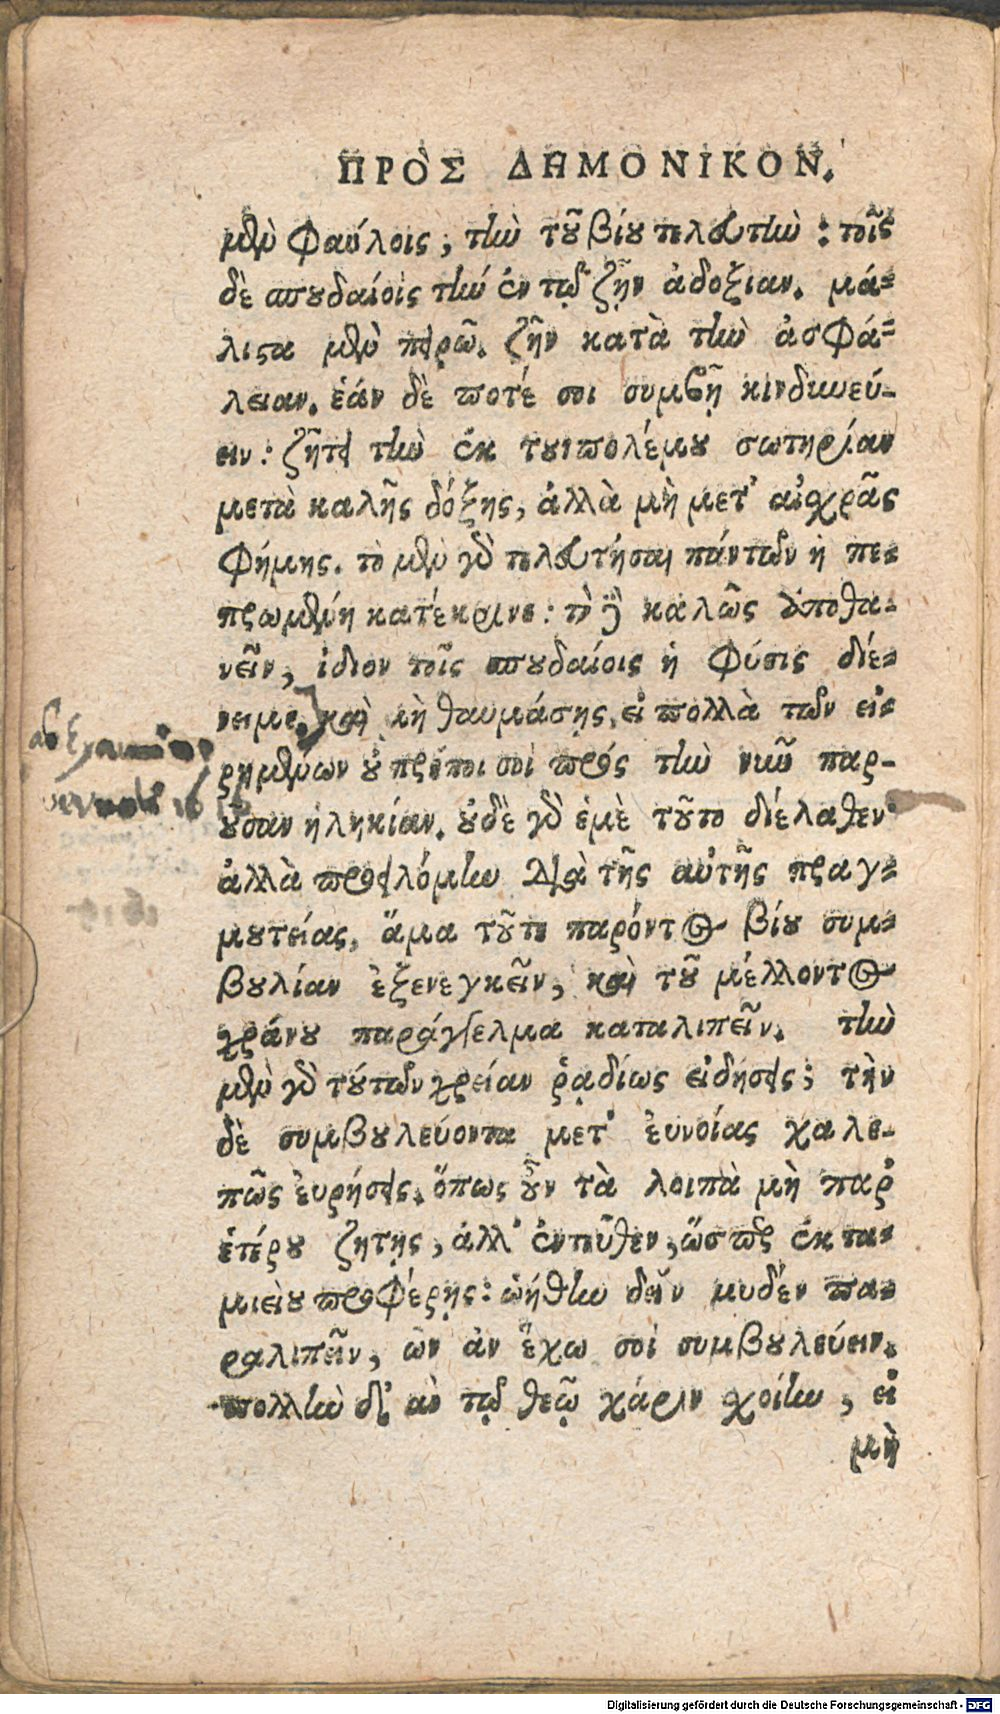 ΠΡῸΣ ΔΗΜΟΝΙΚΟΝ.
μὲν φαύλοις, τὴν τοῦ βίου τελευτὴν: τοῖς
δὲ σπουδαίοις τὴν ἐν τῷ ζῇν ἀδοξιαν. μά-
λιϛα μὲν πειρῶ. ζῇν κατὰ τὴν ἀσφά-
λειαν. ἐάν δὲ ποτέ σοι συμβῇ κινδυνεύ-
ειν: ζῆτει τὴν ἐκ του πολέμου σωτηρίαν
μετὰ καλῆς δόξης, ἀλλὰ μὴ μετ' αἰσχρᾶς
φήμης. τὸ μὲν γὸ τελευτῆσαι πάντων ἡ πε-
πρωμένη κατέκρινε: τὸ δὲ καλῶς ἀποθα-
νεῖν, ἰδιον τοῖς σπουδαίοις ἡ φύσις διέ-
νειμε. καὶ μὴ θαυμάσῃς, εἰ πολλὰ τῶν εἰ-
ρημένων οὐ πρέποι σοὶ πρός τὴν νῦν παρ-
οῦσαν ἡληκίαν. οὐδὲ γὸ ἐμὲ τοῦτο διέλαθεν
ἀλλὰ προειλόμην διὰ τῆς αὐτῆς πραγ-
μυτείας, ἅμα τοῦτε παρόντος βίου συμ-
βουλίαν ἐξενεγκεῖν, καὶ τοῦ μέλλοντος
χρόνου παράγγελμα καταλιπεῖν. τὴν
μὲν γὸ τούτων χρείαν ῥᾳδίως εἰδήσεις; τὴν
δὲ συμβουλεύοντα μετ' ἐυνοίας χαλε-
πῶς ἐυρήσεις. ὅπως οὖν τὰ λοιπὰ μὴ παρ'
ἑτέρου ζητῃς, ἀλλ' ἐντεῦθεν, ὥσπερ ἐκ τα-
μιείου προφέρῃς: ὠήθην δεῖν μυδέν πα-
ραλιπεῖν, ὧν ἀν ἔχω σοὶ συμβουλεύειν.
πολλὴν δ' ἀν τῷ θεῷ χάριν χοίην, εἰ
μὴ
Digitalisierung gefördert durch die Deutsche Forschungsgemeinschaft - DFG